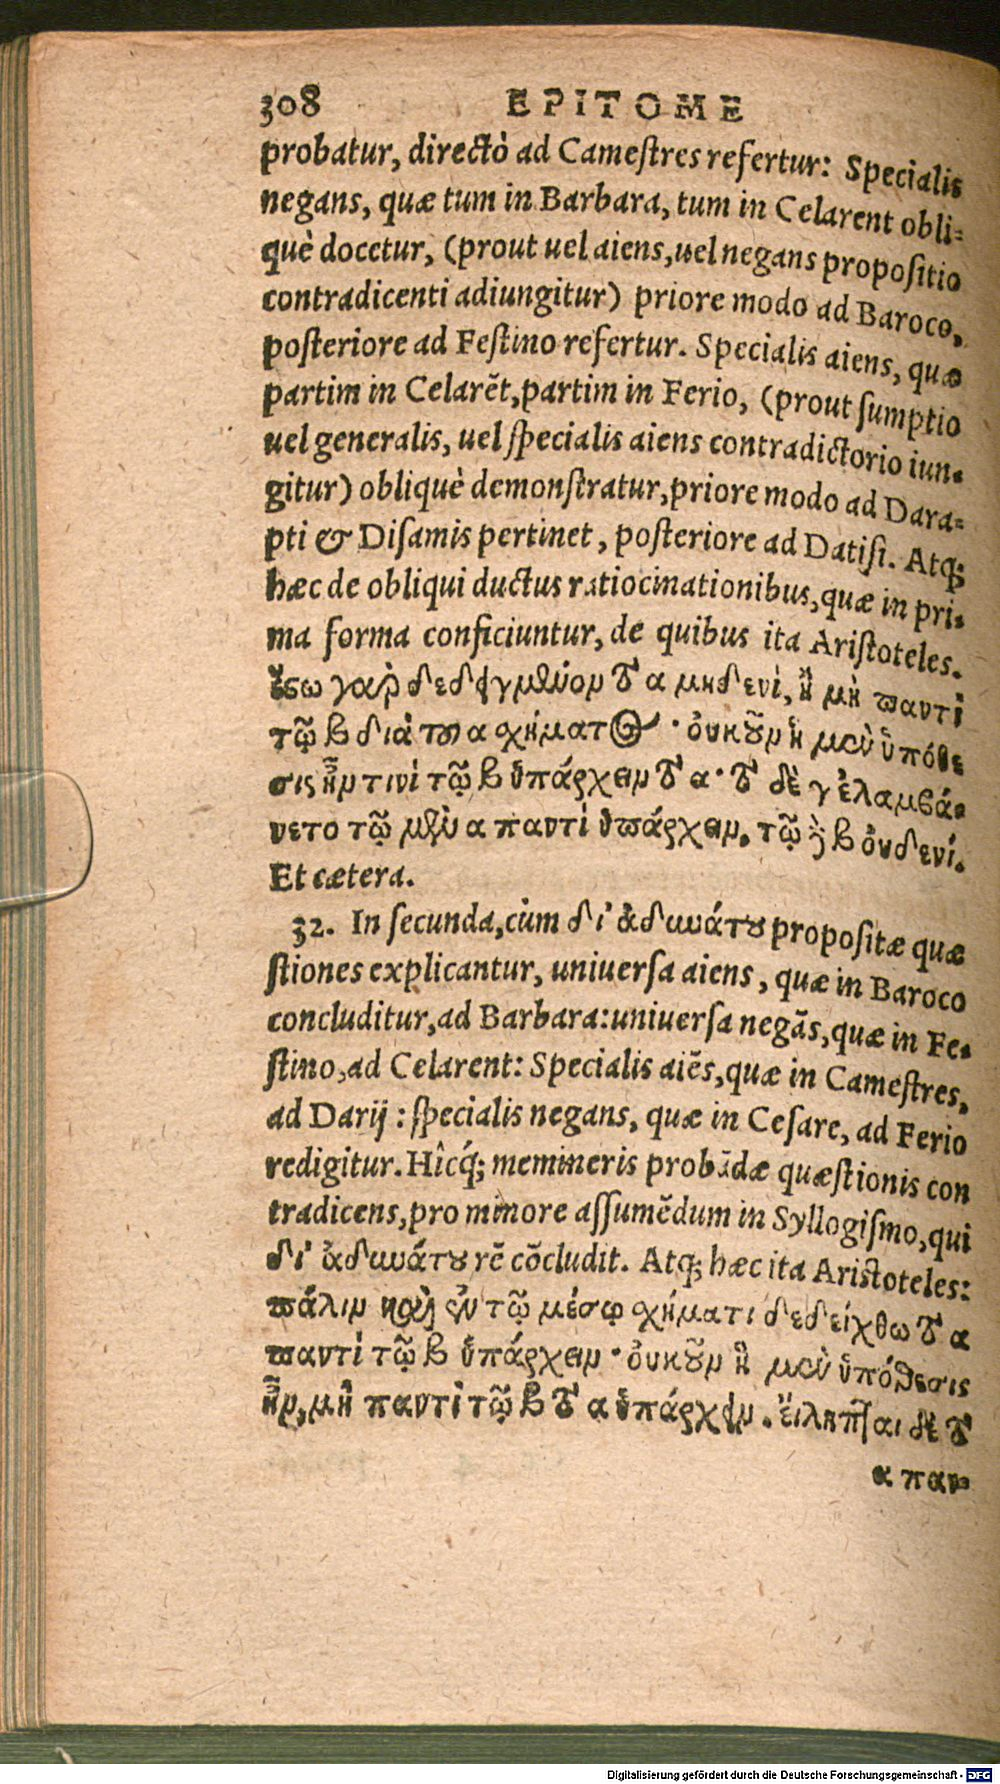 308 EPITOME
probatur, directò ad Cameſtres refertur: Specialis
negans, quæ tum in Barbara, tum in Celarent obli-
què docetur, (prout uel aiens, uel negans propoſitio
contradicenti adiungitur) priore modo ad Baroco,
poſteriore ad Feſtino refertur. Specialis aiens, quæ
partim in Celarẽt, partim in Ferio, (prout ſumptio
uel generalis, uel ſpecialis aiens contradictorio iun-
gitur) obliquè demonſtratur, priore modo ad Dara-
pti & Diſamis pertinet, poſteriore ad Datiſi. Atq;
hæc de obliqui ductus ratiocinationibus, quæ in pri-
ma forma conficiuntur, de quibus ita Ariſtoteles.
ἔστω γαρ̀ δεδειγμένον τὸ α μηδενὶ, ἢ μὴ παντὶ
τῷ β διὰ τοῦ α σχήματος· ὀυκοῦν ἡ μὲν ὑπόθε
σις ἦν τινὶ τῷ β ὑπάρχειν τὸ α· τὸ δὲ γ ἐλαμβά-
νετο τῷ μὲν α παντὶ ὑπάρχειν. τῷ δὲ β ὀυδενί.
Et cætera.
32. In ſecunda, cùm δι' ἀδυνάτου propoſitæ quæ
ſtiones explicantur, uniuerſa aiens, quæ in Baroco
concluditur, ad Barbara: uniuerſa negãs, quæ in Fe-
ſtino, ad Celarent: Specialis aiẽs, quæ in Cameſtres,
ad Darij: ſpecialis negans, quæ in Ceſare, ad Ferio
redigitur. Hîcq́; memineris probãdæ quæſtionis con
tradicens, pro minore aſſumẽdum in Syllogiſmo, qui
δι' ἀδυνάτου rẽ cõcludit. Atq; hæc ita Ariſtoteles:
πάλιν καὶ ἐν τῷ μέσῳ σχήματι δεδείχθω τὸ α
παντὶ τῷ β ὑπάρχειν· ὀυκοῦν ἡ μὲν ὑπόθεσις
ἦν, μὴ παντὶ τῷ β τὸ α ὑπάρχειν. ἔιληπται δὲ τὸ
α παν-
Digitalisierung gefördert durch die Deutsche Forschungsgemeinschaft - DFG